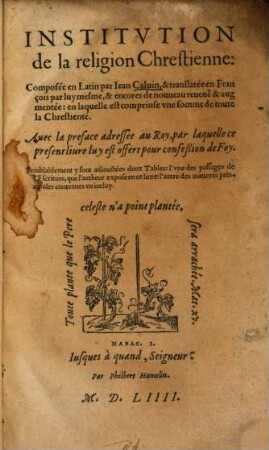 INSTITVTION
de la religion Chrestienne:
Composée en Latin par Iean Caluin, & translatée en Fran
çois par luymesme, & encores de nouueau reueuë & aug
mentée: en laquelle est comprinse vne somme de toute
la Chrestienté.
Auec la preface adressée au Roy, par laquelle ce
present liure luy est offert pour confession de Foy.
Semblablement y sont adioustées deux Tables: l'vne des passages de
l'Escriture, que l'autheur expose en ce liure: l'autre des matieres prin-
cipales contenues en iceluy.
Toute plante que le Pere
celeste n'a point plantée,
sera arrachée. Mat. xv.
HABAC. I.
Iusques à quand, Seigneur?
Par Philbert Hamelin.
M. D. LIIII.